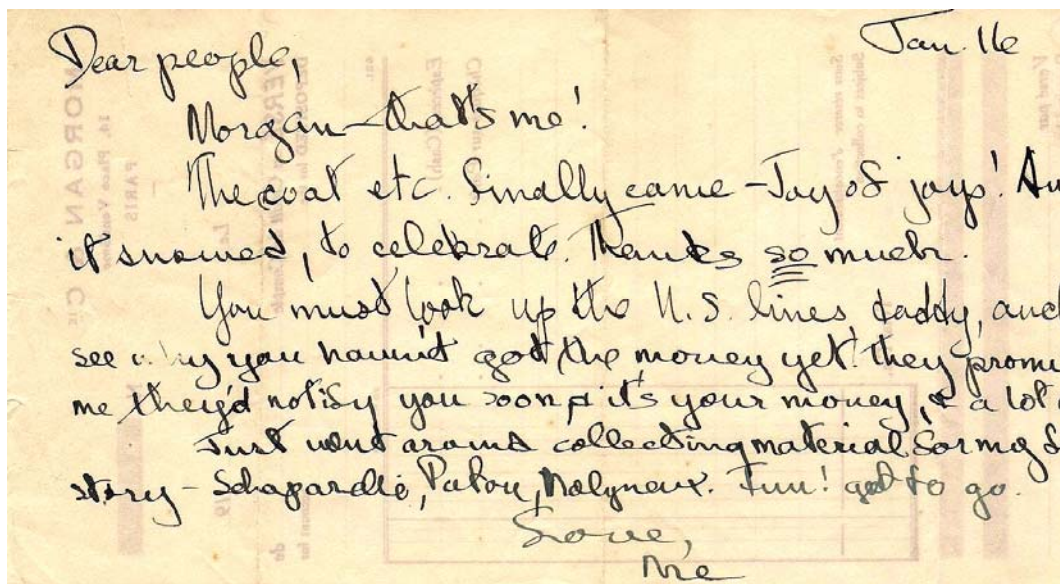 Dear people,
Jan. 16
Morgan – that's me!
The coat etc. finally came – Joy of joys! An
it snowed, to celebrate. Thanks so much.
You must look up the U.S. lines daddy, and
see why you haven't got the money yet. they promi
me they'd notify you soon & it's your money, & a lot
Just went around collecting material for my
story – Schaparelli, Patou, Molyneux. Fun! got to go.
Love,
Me
MORGAN & Cie
14, Place Vendôme
PARIS